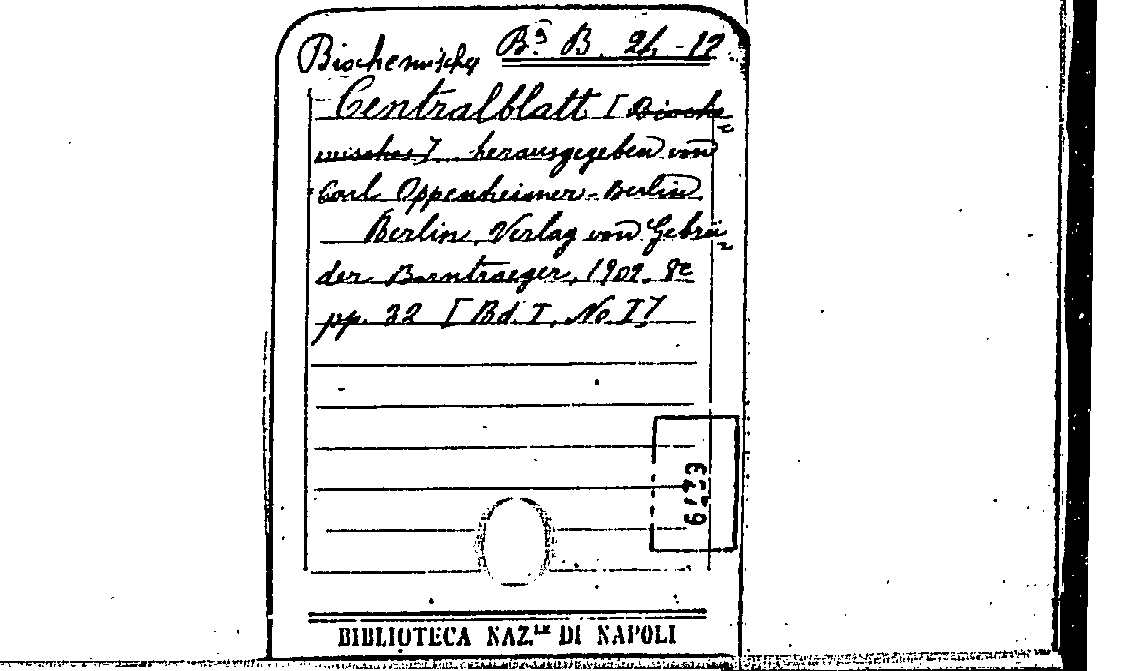 Biochemisches Bª B. 21-12
Centralblatt [Bioche=
misches]. herausgegeben von
Carl Oppenheimer-Berlin.
Berlin, Verlag von Gebrü=
der Borntraeger, 1902. 8º
pp. 32 [Bd. I, No I]
BIBLIOTECA NAZ.LE DI NAPOLI